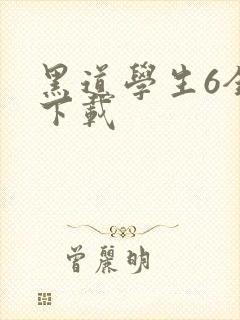 黑道學生6全
下載
曾麗明